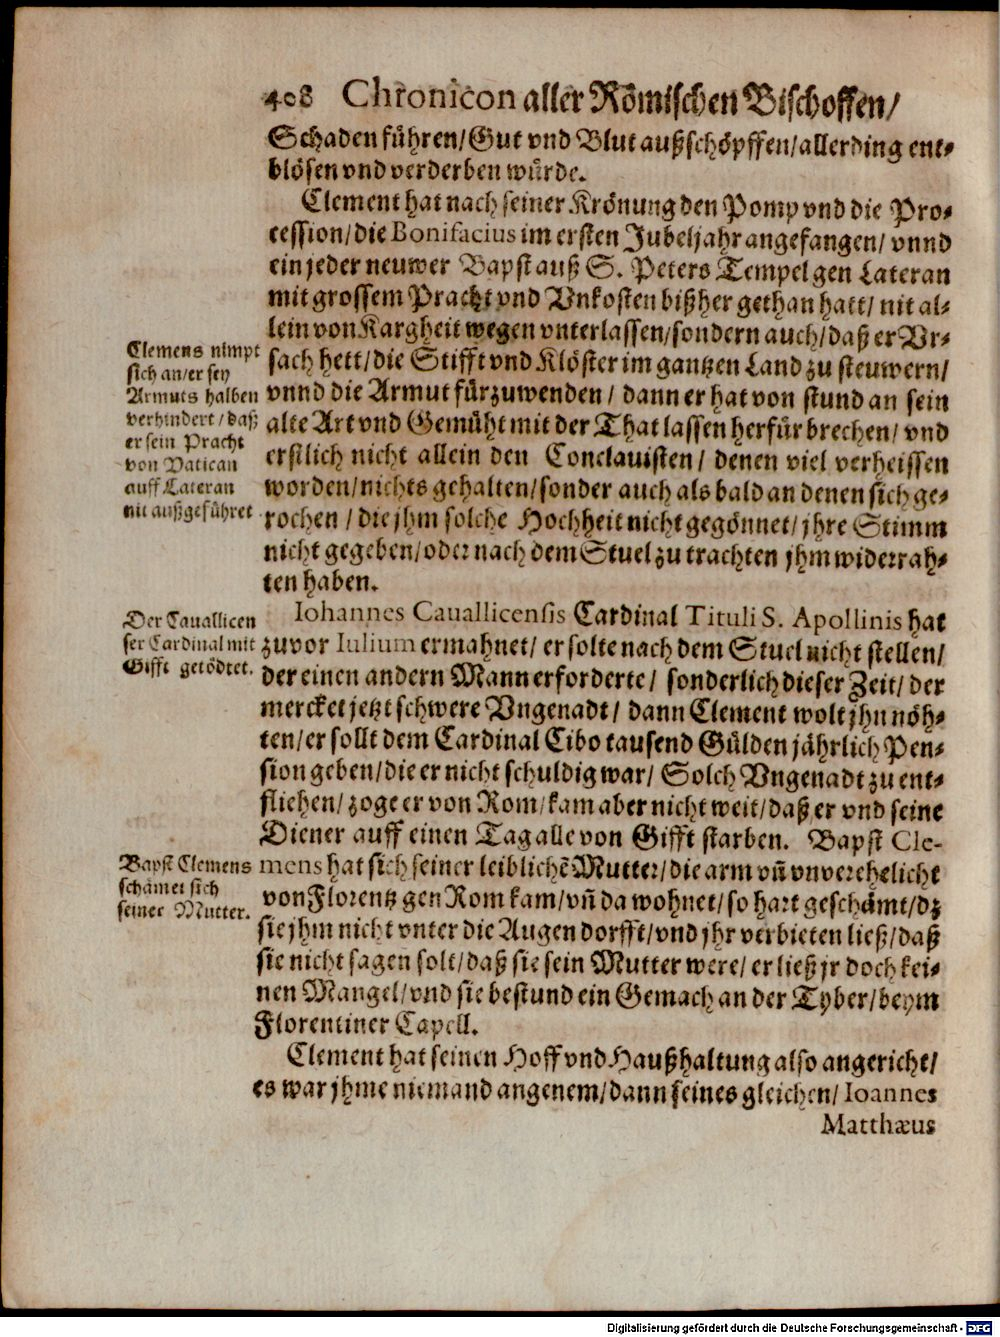 408 Chronicon aller Römischen Bischoffen/
Schaden führen/Gut vnd Blut außschöpffen/allerding ent-
blösen vnd verderben würde.
Clement hat nach seiner Krönung den Pomp vnd die Pro-
cession/die Bonifacius im ersten Jubeljahr angefangen/ vnnd
ein jeder neuwer Bapst auß S. Peters Tempel gen Lateran
mit grossem Pracht vnd Vnkosten bißher gethan hatt/ nit al-
lein von Kargheit wegen vnterlassen/sondern auch/daß er Vr-
Clemens nimpt
sich an/er sey
Armuts halben
verhindert/daß
er sein Pracht
von Vatican
auff Lateran
nit außgeführet
sach hett/die Stifft vnd Klöster im gantzen Land zu steuwern/
vnnd die Armut fürzuwenden/ dann er hat von stund an sein
alte Art vnd Gemüht mit der That lassen herfür brechen/ vnd
erstlich nicht allein den Conclauisten/ denen viel verheissen
worden/nichts gehalten/sonder auch als bald an denen sich ge-
rochen/die jhm solche Hochheit nicht gegönnet/jhre Stimm
nicht gegeben/oder nach dem Stuel zu trachten jhm widerrah-
ten haben.
Der Cauallicen
ser Cardinal mit
Gifft getödtet.
Iohannes Cauallicensis Cardinal Tituli S. Apollinis hat
zuvor Iulium ermahnet/ er solte nach dem Stuel nicht stellen/
der einen andern Mann erforderte/ sonderlich dieser Zeit/ der
mercket jetzt schwere Vngenadt/ dann Clement wolt jhn nöh-
ten/er sollt dem Cardinal Cibo tausend Gülden jährlich Pen-
sion geben/die er nicht schuldig war/ Solch Vngenadt zu ent-
fliehen/ zoge er von Rom/kam aber nicht weit/daß er vnd seine
Diener auff einen Tag alle von Gifft starben. Bapst Cle-
Bapst Clemens
schämet sich
seiner Mutter.
mens hat sich seiner leiblichẽ Mutter/die arm vñ vnverehelicht
von Florentz gen Rom kam/vñ da wohnet/so hart geschämt/dz
sie jhm nicht vnter die Augen dorfft/vnd jhr verbieten ließ/daß
sie nicht sagen solt/daß sie sein Mutter were/ er ließ jr doch kei-
nen Mangel/vnd sie bestund ein Gemach an der Tyber/beym
Florentiner Capell.
Clement hat seinen Hoff vnd Haußhaltung also angericht/
es war jhme niemand angenem/dann seines gleichen/ Ioannes
Matthæus
Digitalisierung gefördert durch die Deutsche Forschungsgemeinschaft - DFG